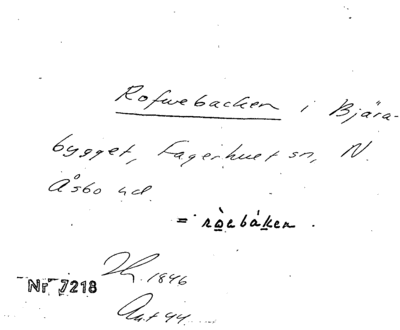 Rofwebacken i Bjära-
bygget, Fagerhult sn, N.
Åsbo hd.
= ròebåken.
1846
Nr 7218
Ant 44